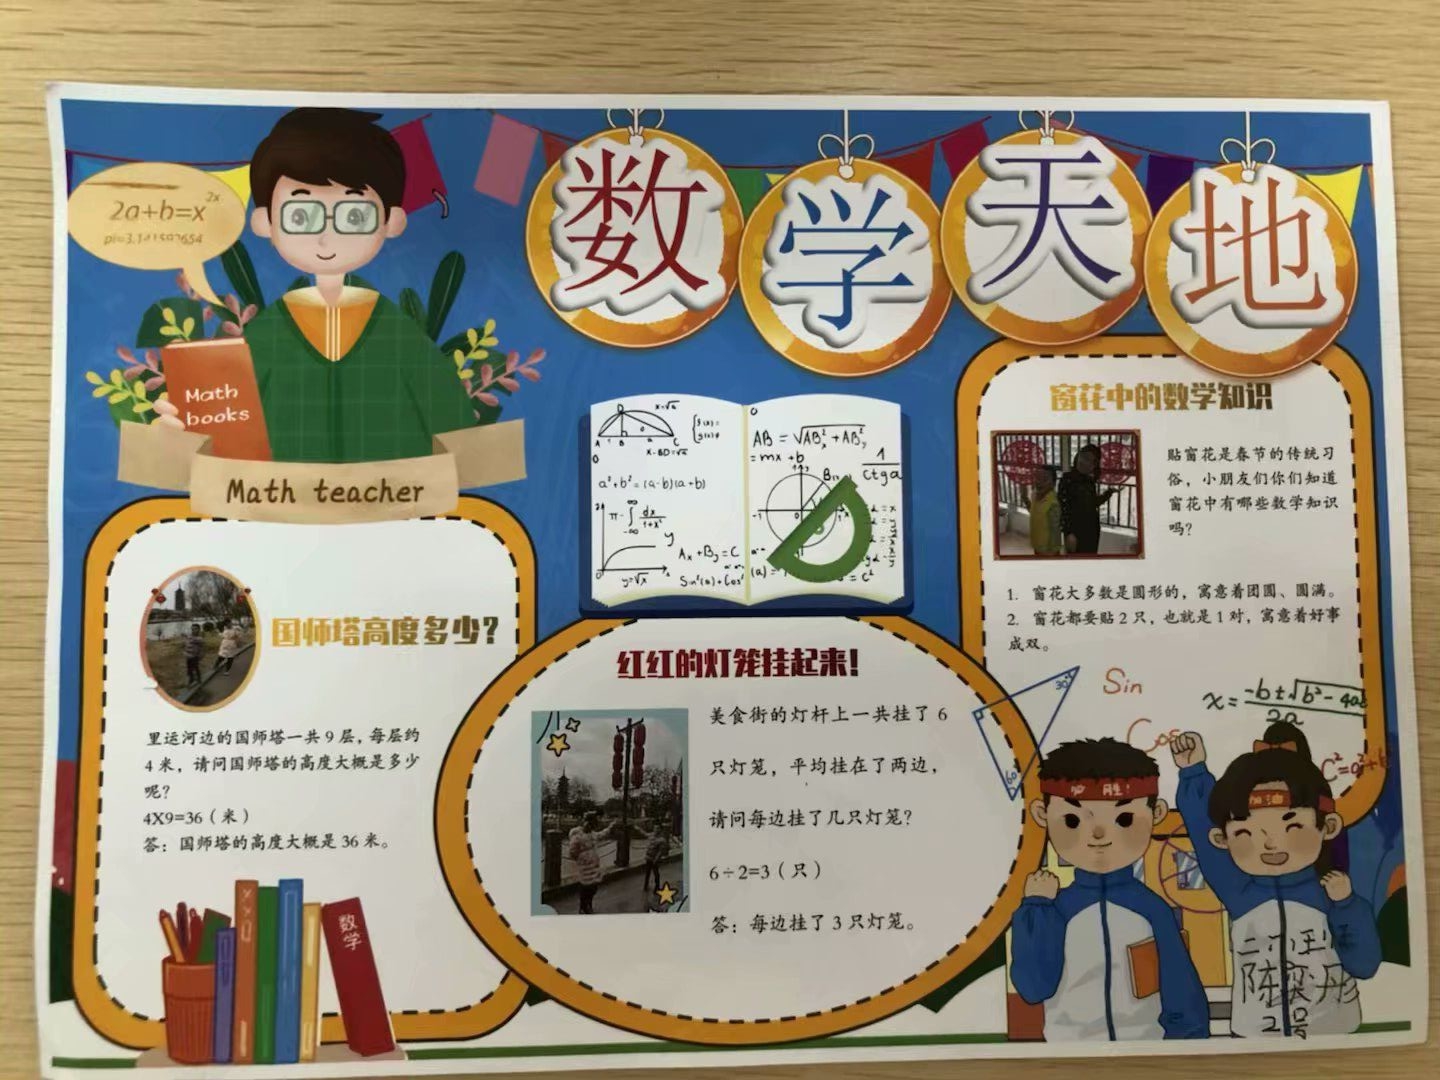 数学天地
2a+b=x^2x
pi=3.141592654
Math
books
Math teacher
国师塔高度多少？
里运河边的国师塔一共 9 层，每层约
4 米，请问国师塔的高度大概是多少
呢？
4X9=36（米）
答：国师塔的高度大概是 36 米。
数学
AB = √AB²x + AB²y
= mx + b
1
ctga
a²+b²=(a-b)(a+b)
Ax + By = C
y=√x
红红的灯笼挂起来！
美食街的灯杆上一共挂了 6
只灯笼，平均挂在了两边，
请问每边挂了几只灯笼？
6÷2=3（只）
答：每边挂了 3 只灯笼。
窗花中的数学知识
贴窗花是春节的传统习
俗，小朋友们你们知道
窗花中有哪些数学知识
吗？
1. 窗花大多数是圆形的，寓意着团圆、圆满。
2. 窗花都要贴 2 只，也就是 1 对，寓意着好事
成双。
30°
60
Sin
Cos
必胜！
加油
2号